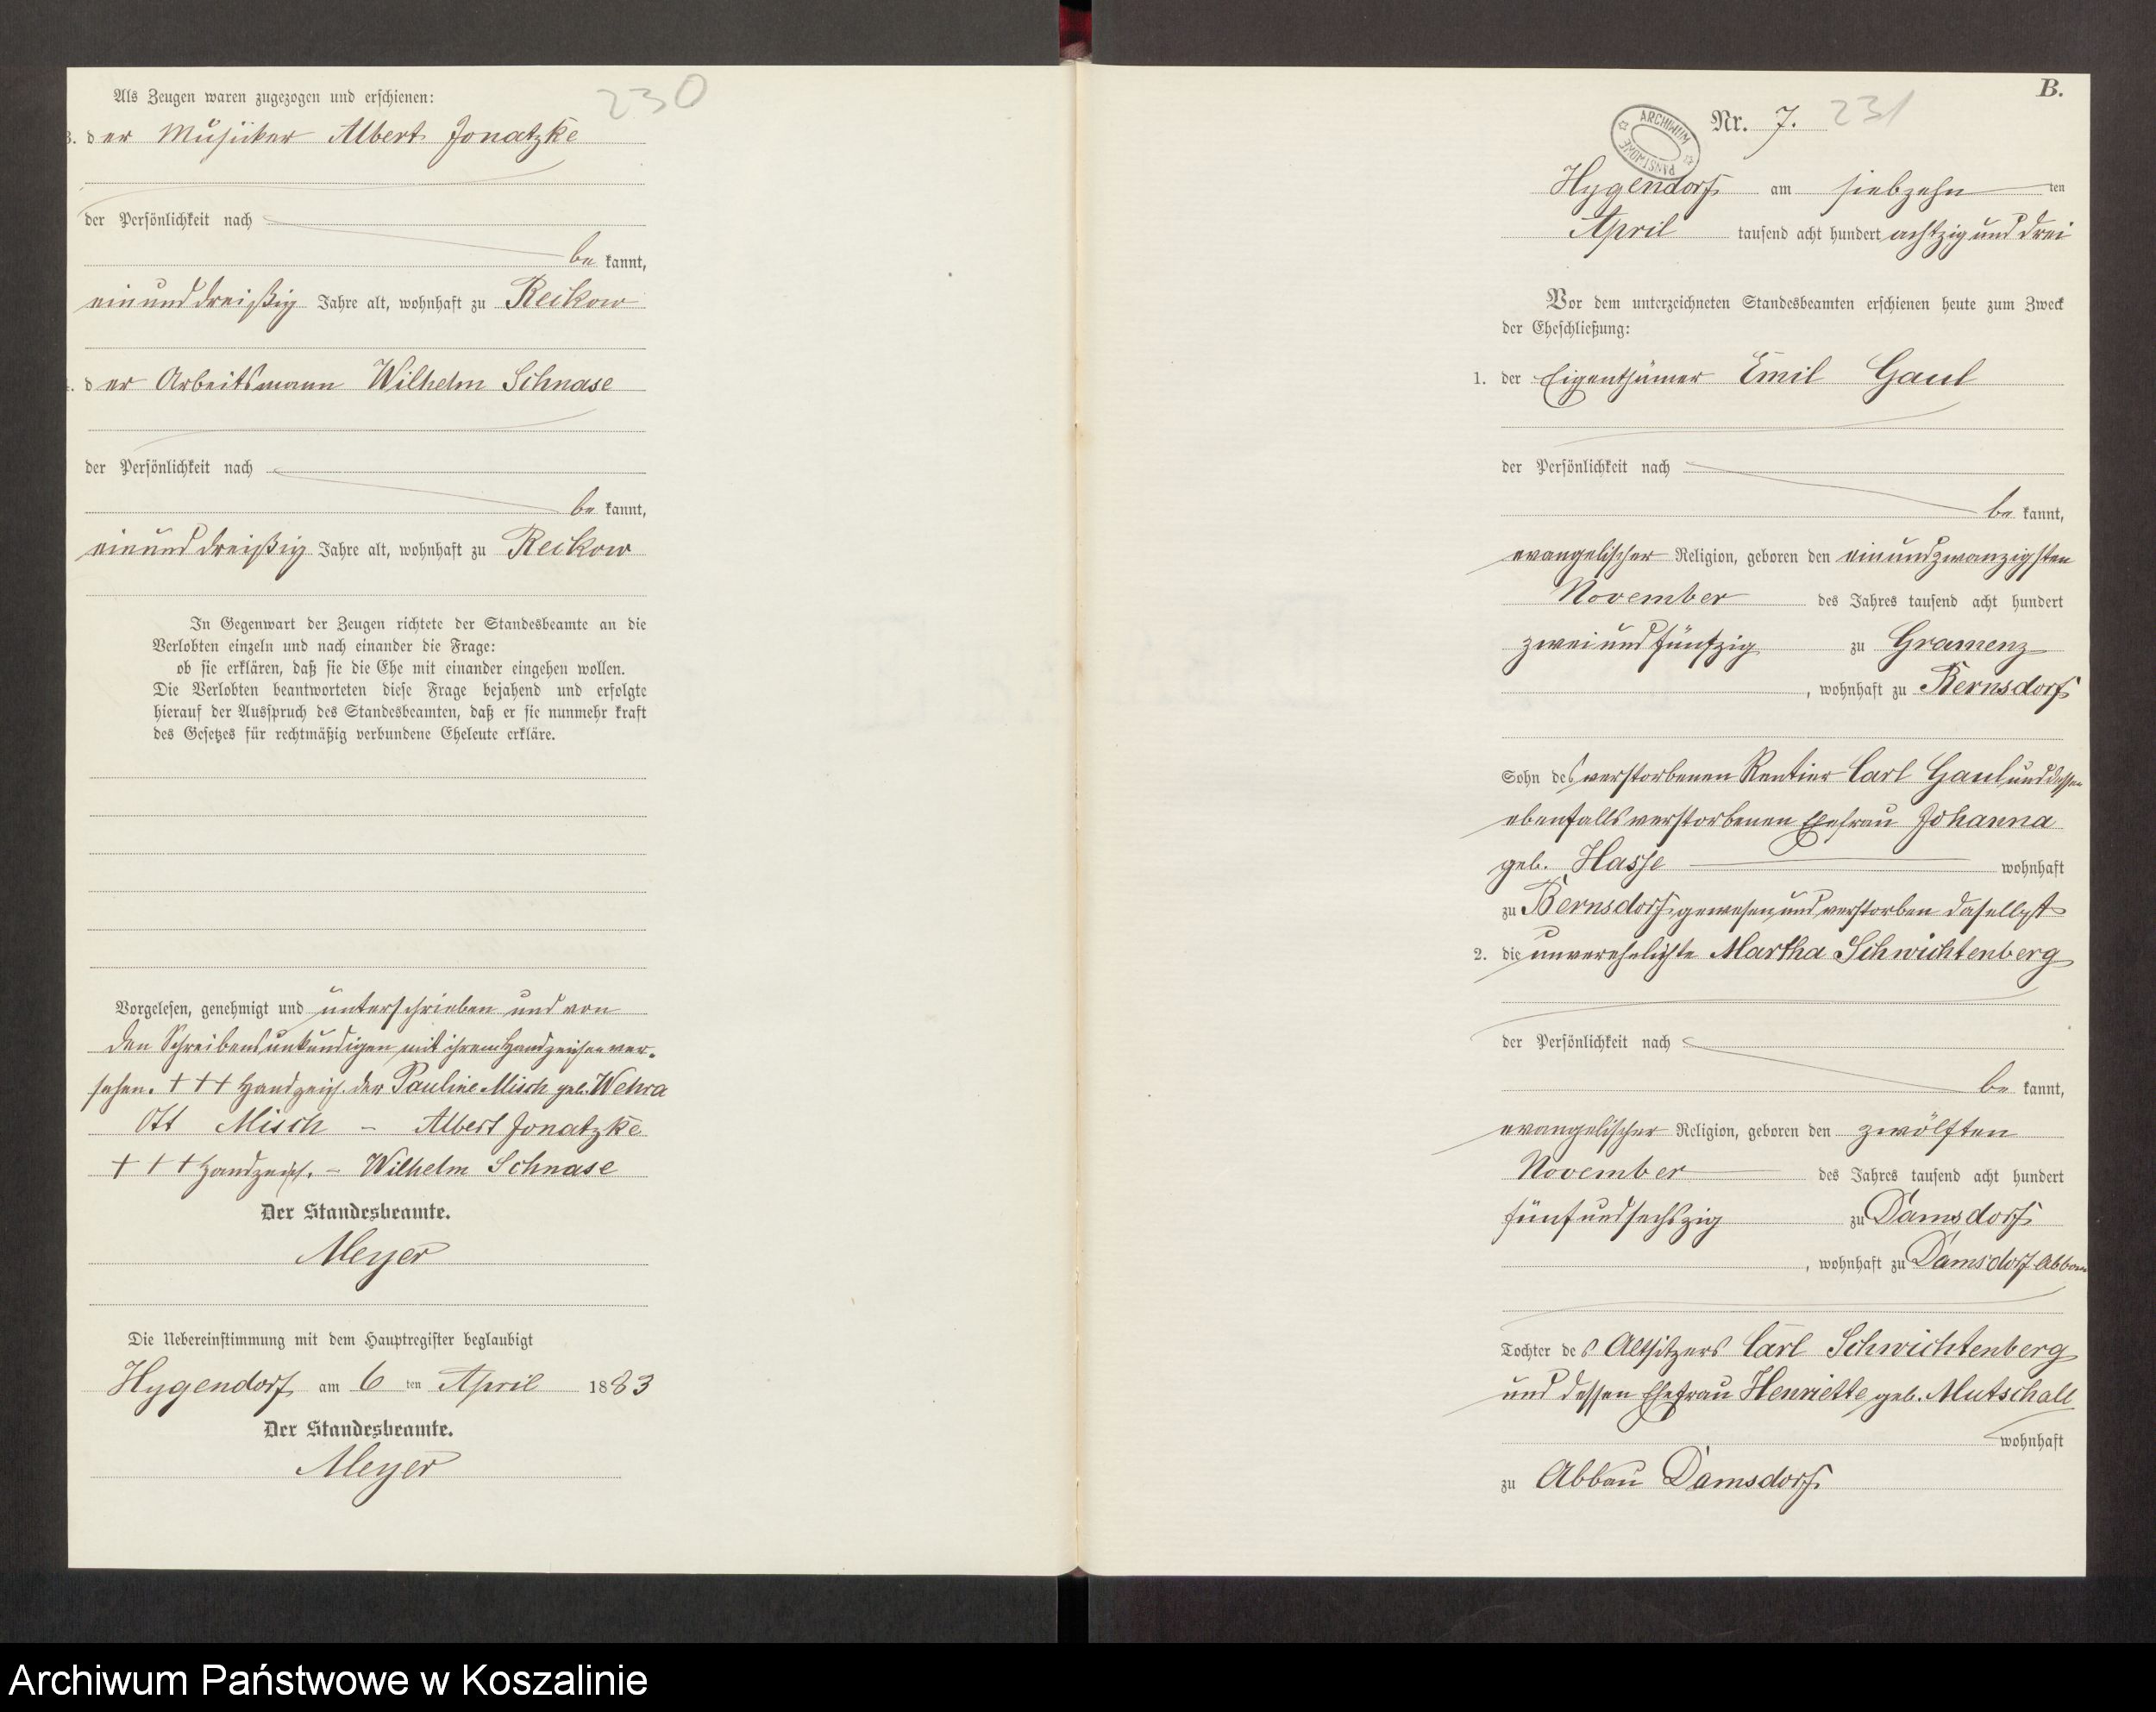 Als Zeugen waren zugezogen und erschienen:
230
3. der Musiker Albert Jonatzke
der Persönlichkeit nach
be kannt,
einunddreißig Jahre alt, wohnhaft zu Reckow
4. der Arbeitsmann Wilhelm Schnase
der Persönlichkeit nach
be kannt,
einunddreißig Jahre alt, wohnhaft zu Reckow
In Gegenwart der Zeugen richtete der Standesbeamte an die
Verlobten einzeln und nach einander die Frage:
ob sie erklären, daß sie die Ehe mit einander eingehen wollen.
Die Verlobten beantworteten diese Frage bejahend und erfolgte
hierauf der Ausspruch des Standesbeamten, daß er sie nunmehr kraft
des Gesetzes für rechtmäßig verbundene Eheleute erkläre.
Vorgelesen, genehmigt und unterschrieben und von
den Schreibensunkundigen mit ihrem Handzeichen ver-
sehen. +++ Handzeich. der Pauline Misch geb. Wehra
Ott Misch - Albert Jonatzke
+++ Handzeich. - Wilhelm Schnase
Der Standesbeamte.
Meyer
Die Uebereinstimmung mit dem Hauptregister beglaubigt
Hygendorf am 6 ten April 1883
Der Standesbeamte.
Meyer
B.
ARCHIWUM PAŃSTWOWE
Nr. 7. 231
Hygendorf am siebzehn ten
April tausend acht hundert achtzig und drei
Vor dem unterzeichneten Standesbeamten erschienen heute zum Zweck
der Eheschließung:
1. der Eigenthümer Emil Gaul
der Persönlichkeit nach
be kannt,
evangelischer Religion, geboren den einundzwanzigsten
November des Jahres tausend acht hundert
zweiundfünfzig zu Gramenz
, wohnhaft zu Bernsdorf
Sohn des verstorbenen Rentier Carl Gaul und dessen
ebenfalls verstorbenen Ehefrau Johanna
geb. Hasse wohnhaft
zu Bernsdorf gewesen und verstorben daselbst
2. die unverehelichte Martha Schwichtenberg
der Persönlichkeit nach
be kannt,
evangelischer Religion, geboren den zwölften
November des Jahres tausend acht hundert
fünfundsechszig zu Damsdorf
, wohnhaft zu Damsdorf Abbau
Tochter des Altsitzers Carl Schwichtenberg
und dessen Ehefrau Henriette geb. Mutschall
wohnhaft
zu Abbau Damsdorf
Archiwum Państwowe w Koszalinie